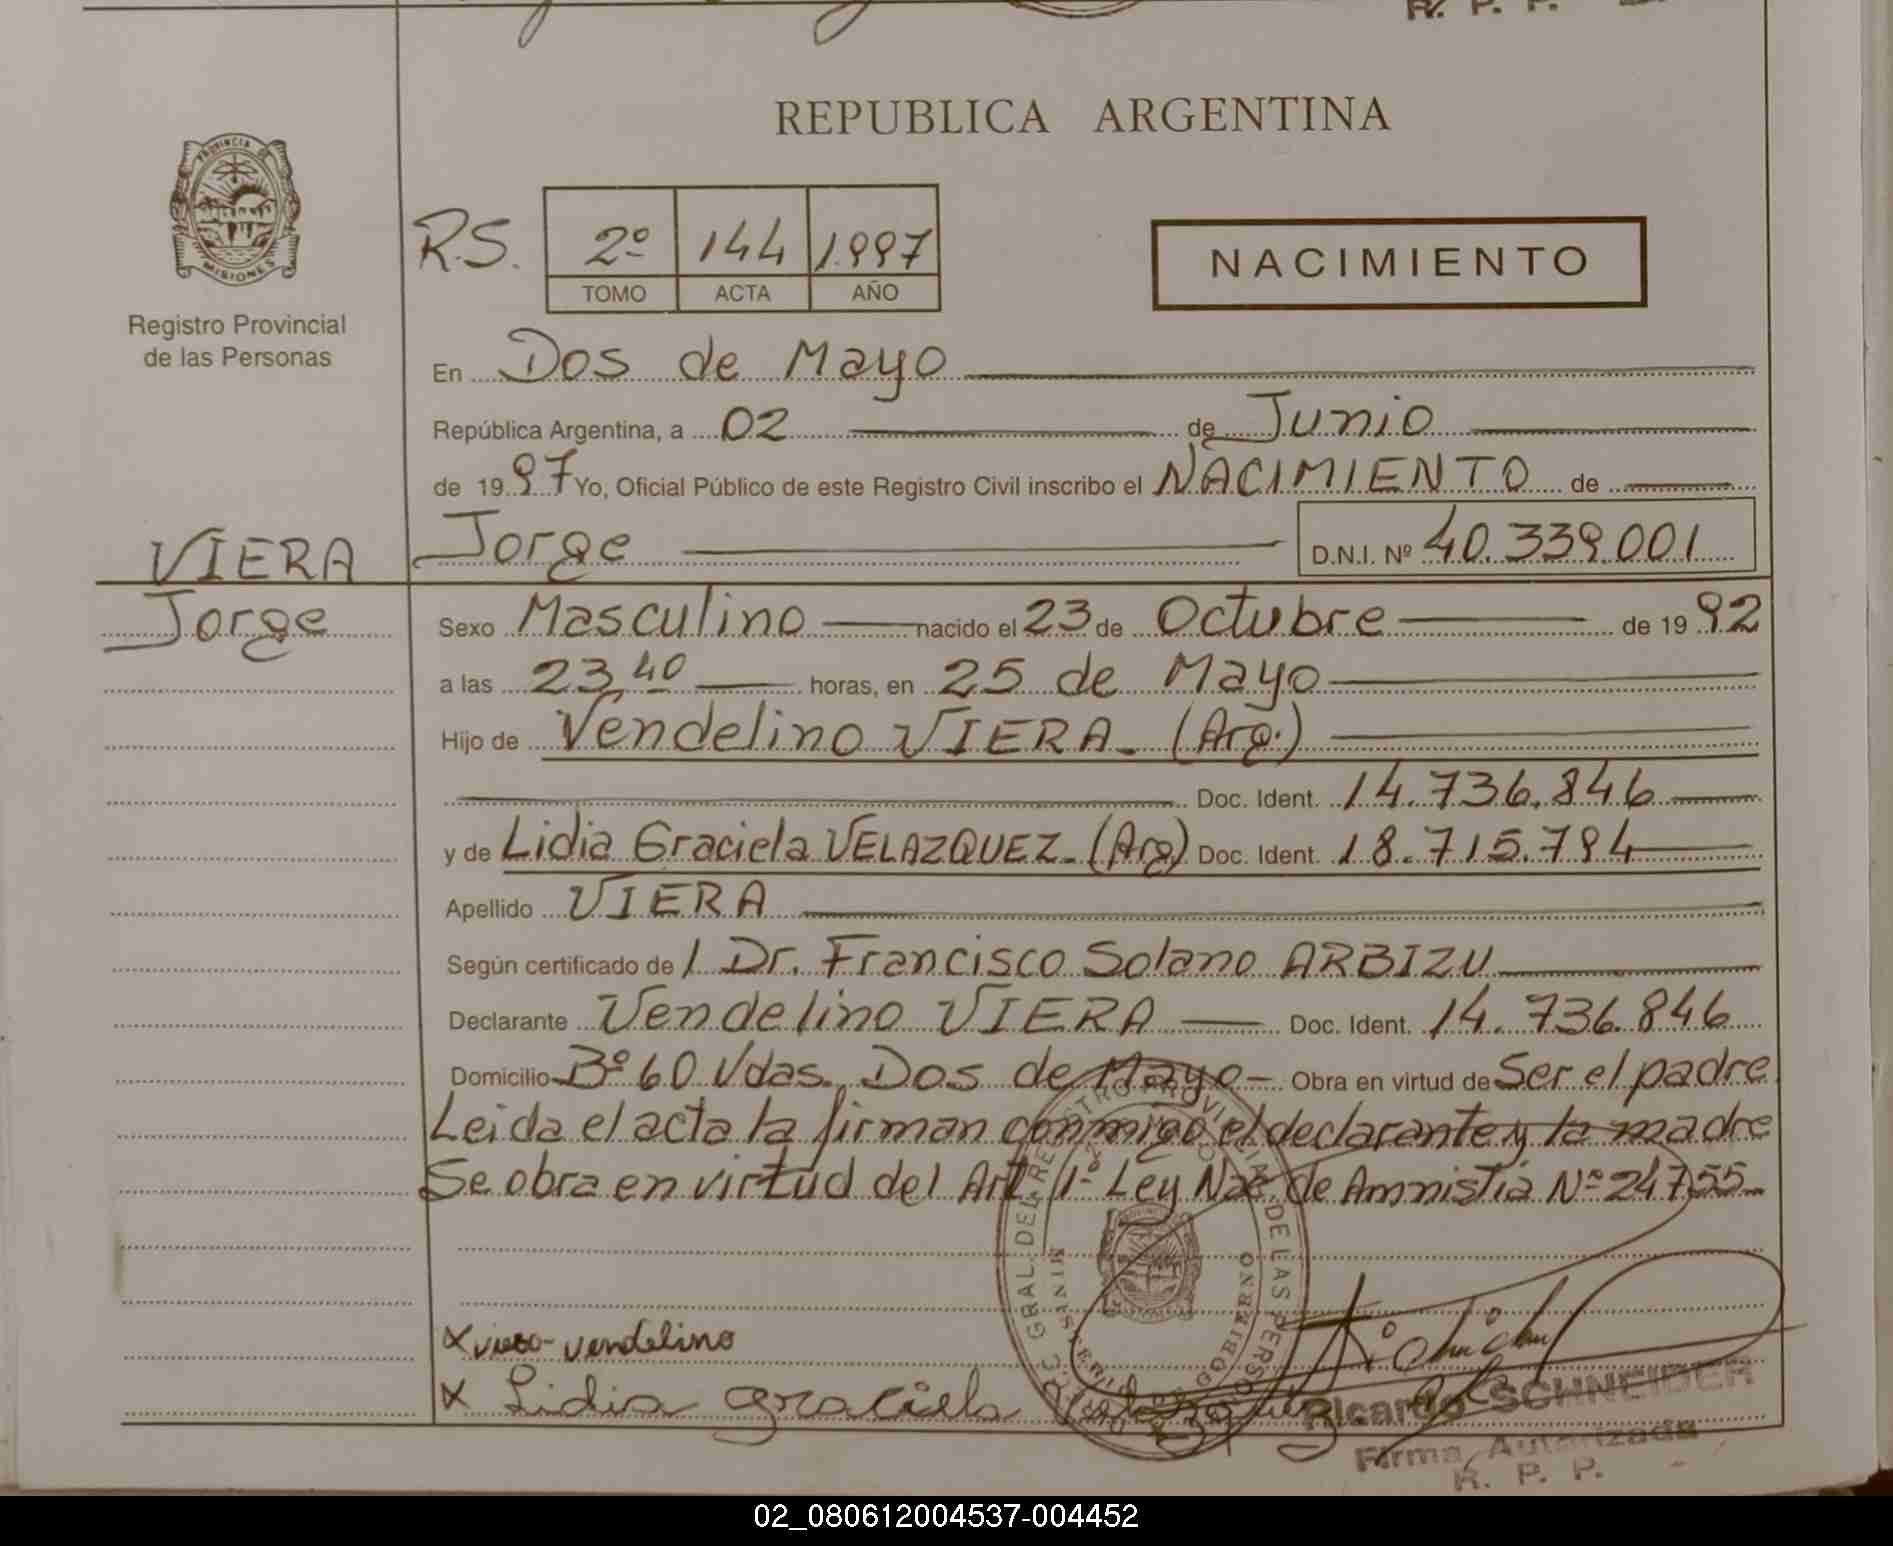 R. P. P.
REPUBLICA ARGENTINA
PROVINCIA DE
MISIONES
Registro Provincial
de las Personas
R.S.
2º 144 1.997
TOMO ACTA AÑO
NACIMIENTO
En Dos de Mayo
República Argentina, a 02 de Junio
de 1997 Yo, Oficial Público de este Registro Civil inscribo el NACIMIENTO de
VIERA Jorge D.N.I. Nº 40.339.001
Jorge Sexo Masculino nacido el 23 de Octubre de 1992
a las 23,40 horas, en 25 de Mayo
Hijo de Vendelino VIERA - (Arg.)
Doc. Ident. 14.736.846
y de Lidia Graciela VELAZQUEZ - (Arg) Doc. Ident. 18.715.794
Apellido VIERA
Según certificado de / Dr. Francisco Solano ARBIZU
Declarante Vendelino VIERA Doc. Ident. 14.736.846
Domicilio Bº 60 Vdas. Dos de Mayo - Obra en virtud de Ser el padre
Leida el acta la firman conmigo el declarante y la madre
Se obra en virtud del Art. 1º Ley Nac. de Amnistia Nº 24755
GRAL. DEL REGISTRO PROVINCIAL DE LAS PERSONAS
MINISTERIO DE GOBIERNO
x viera - vendelino
x Lidia graciela
Ricardo SCHNEIDER
Firma Autorizada
R. P. P.
02_080612004537-004452